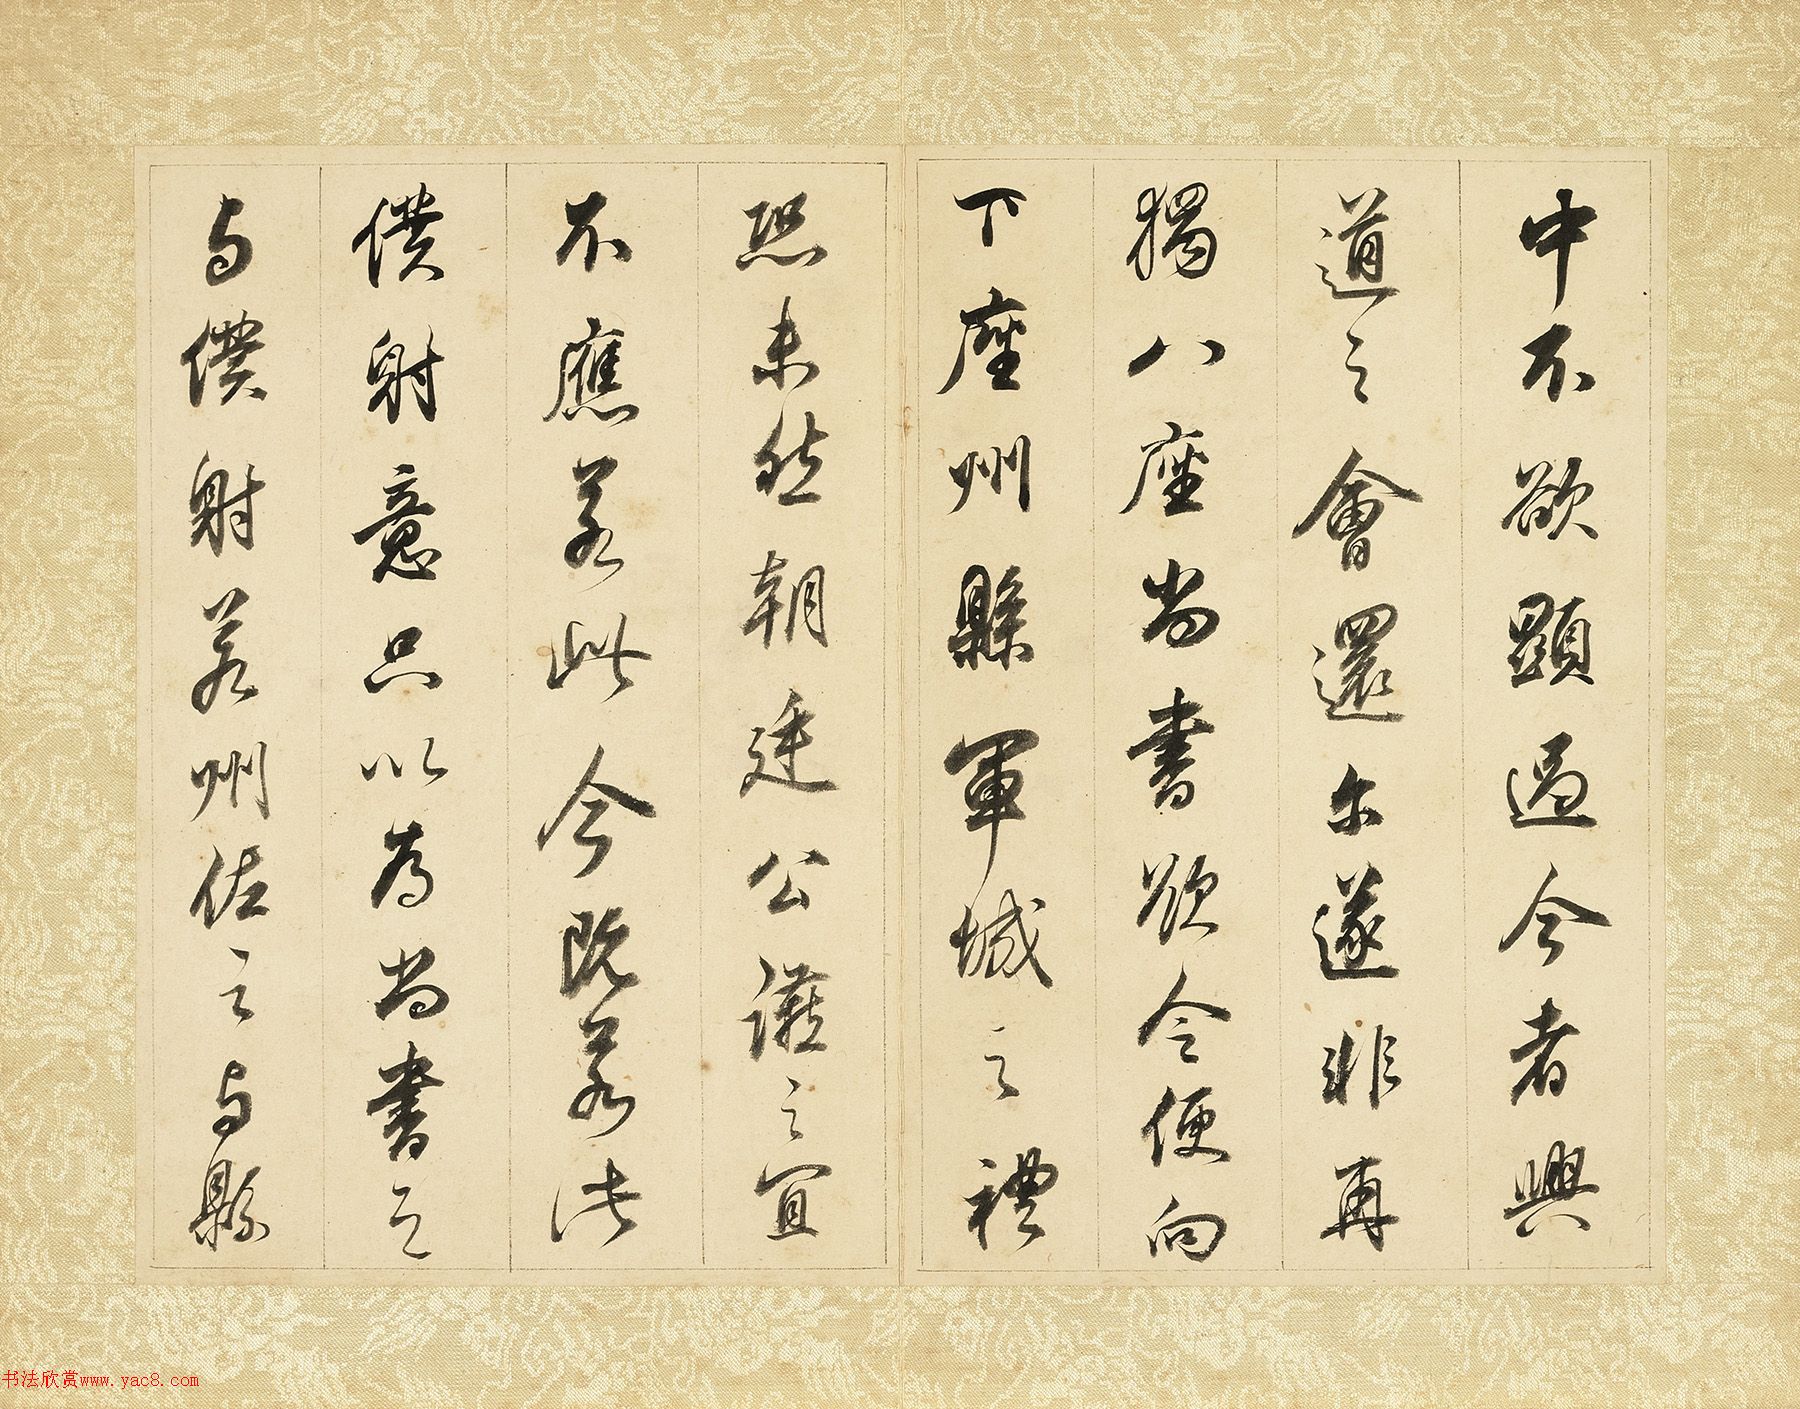 中不欲顯過今者興
道之會還尔遂非再
猲八座尚書欲令便向
下座州縣軍城之禮
恐未然朝廷公讌之宜
不應若此今既若此
僕射意只以為尚書之
与僕射若州佐之与縣
书法欣赏www.yac8.com